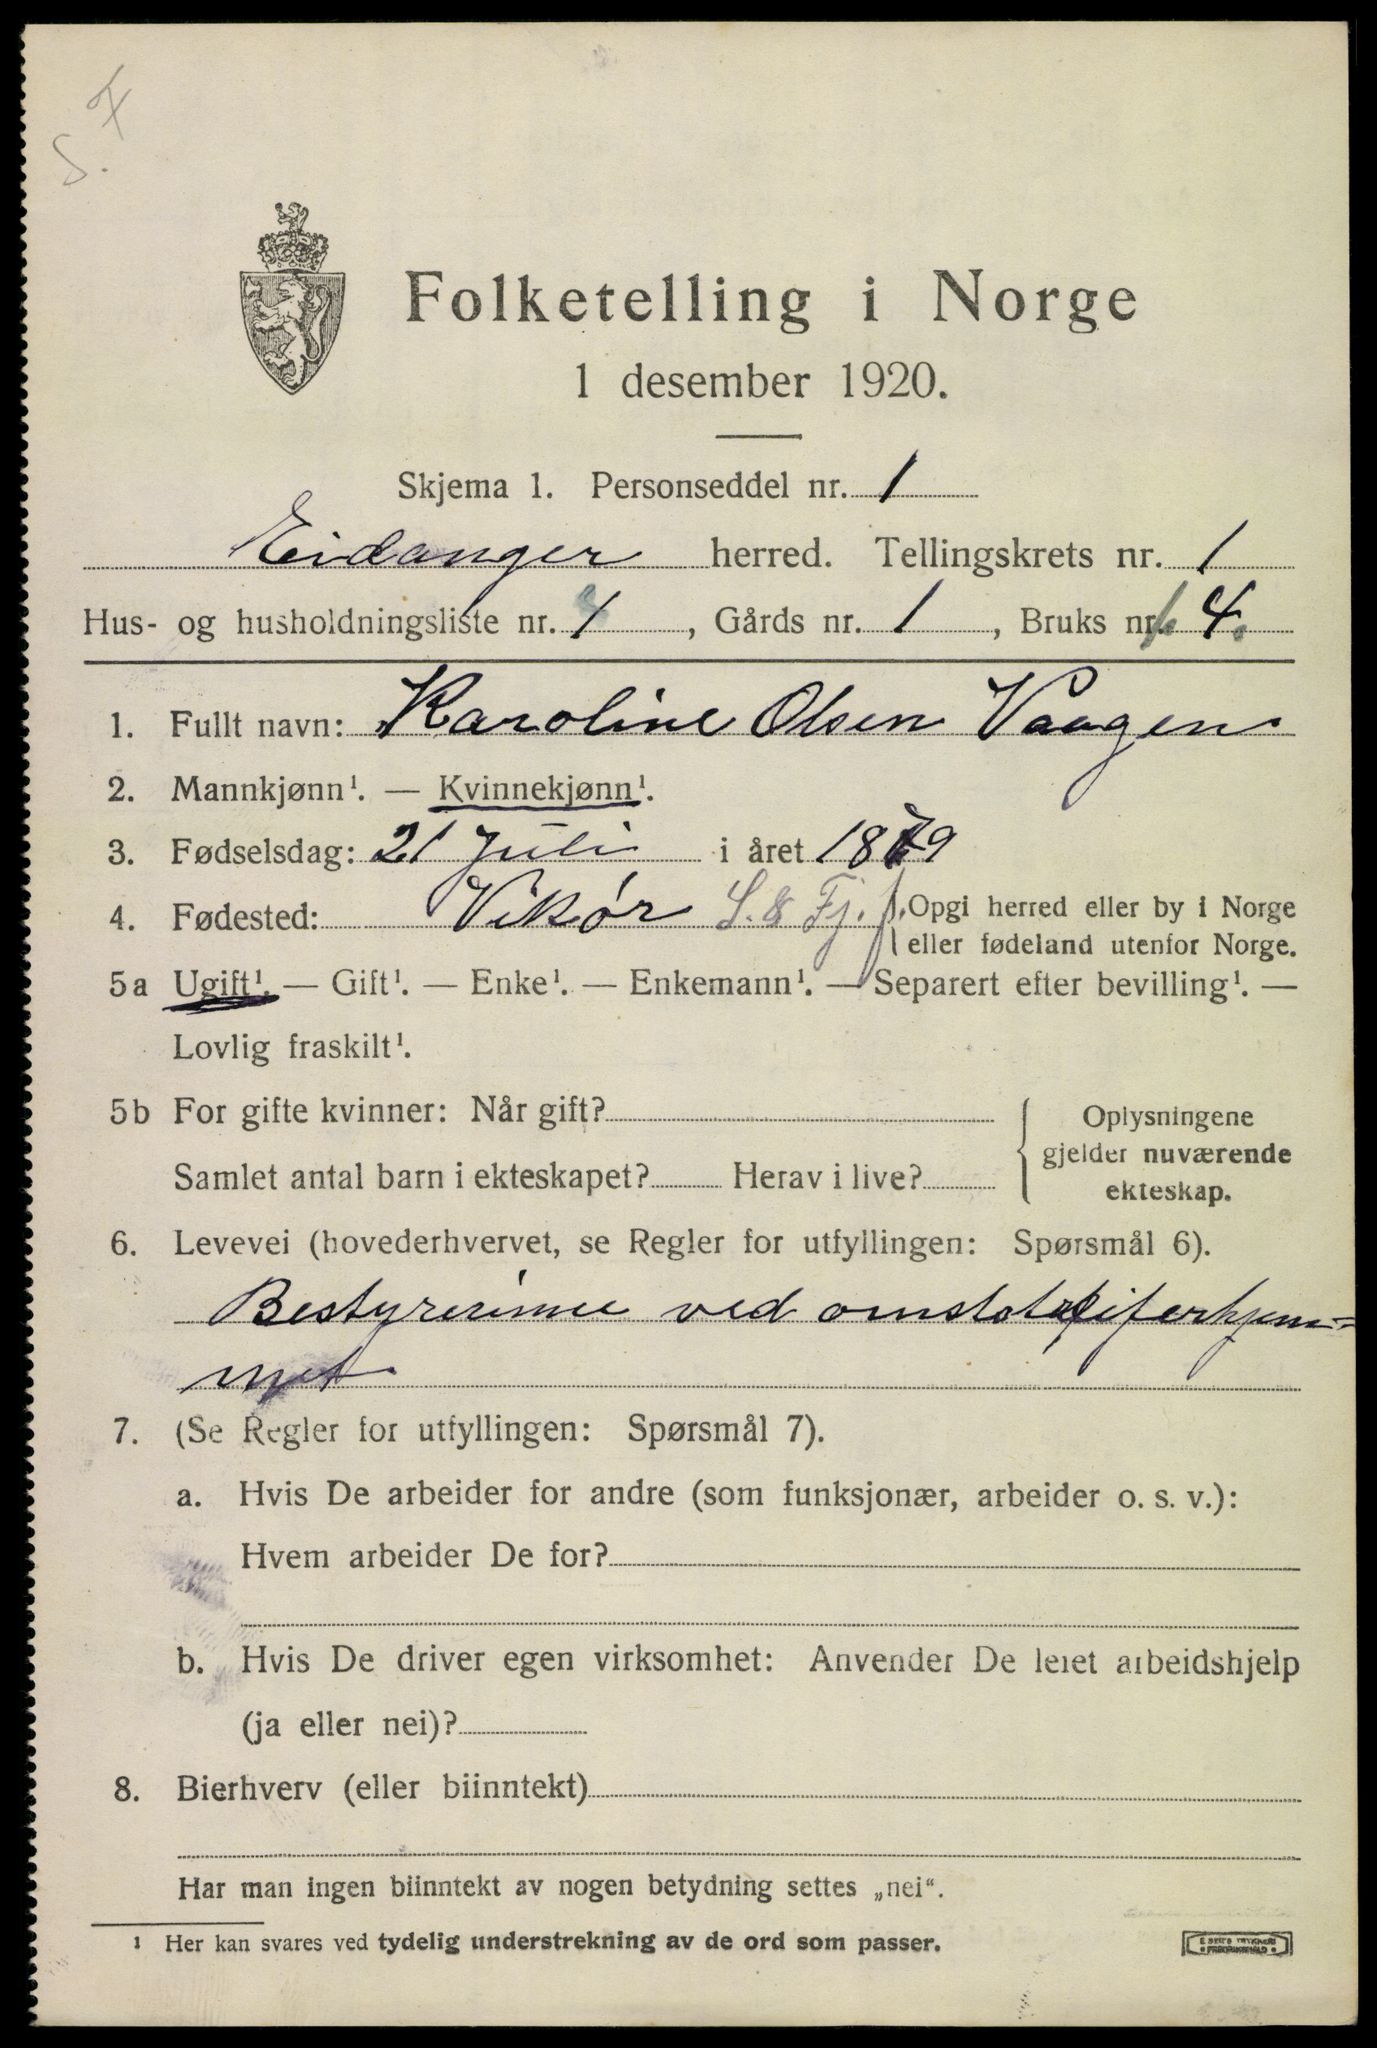 S. F
Folketelling i Norge
1 desember 1920.
Skjema 1. Personseddel nr. 1
Eidanger herred. Tellingskrets nr. 1
Hus- og husholdningsliste nr. 1, Gårds nr. 1, Bruks nr. 4.
1. Fullt navn: Karoline Olsen Vaagen
2. Mannkjønn¹. — Kvinnekjønn¹.
3. Fødselsdag: 21 Juli i året 1879
4. Fødested: Vikør S. & Fj. f. Opgi herred eller by i Norge
eller fødeland utenfor Norge.
5a Ugift¹. — Gift¹. — Enke¹. — Enkemann¹. — Separert efter bevilling¹. —
Lovlig fraskilt¹.
5b For gifte kvinner: Når gift?
Samlet antal barn i ekteskapet? Herav i live?
Oplysningene
gjelder nuværende
ekteskap.
6. Levevei (hovederhvervet, se Regler for utfyllingen: Spørsmål 6).
Bestyrerinne ved
met
7. (Se Regler for utfyllingen: Spørsmål 7).
a. Hvis De arbeider for andre (som funksjonær, arbeider o. s. v.):
Hvem arbeider De for?
b. Hvis De driver egen virksomhet: Anvender De leiet arbeidshjelp
(ja eller nei)?
8. Bierhverv (eller biinntekt)
Har man ingen biinntekt av nogen betydning settes „nei“.
¹ Her kan svares ved tydelig understrekning av de ord som passer.